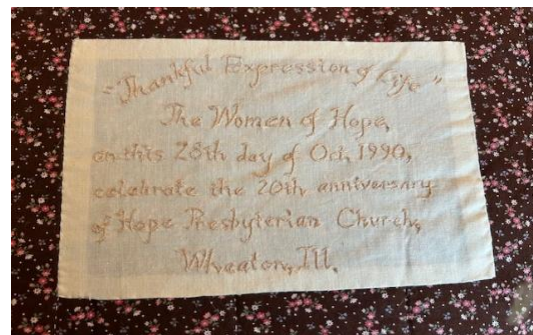 "Thankful Expression of Life"
The Women of Hope,
on this 28th day of Oct, 1990,
celebrate the 20th anniversary
of Hope Presbyterian Church,
Wheaton, Ill.